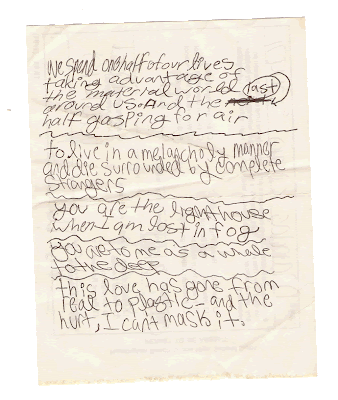 we spend one half of our lives
taking advantage of
the material world
around us. And the last
half gasping for air
to live in a melancholy manner
and die surrounded by complete
strangers
you are the lighthouse
when I am lost in fog
you are to me as a whale
to the deep
this love has gone from
real to plastic - and the
hurt, I cant mask it.